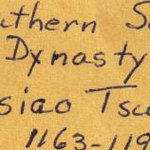 uthern S
Dynasty
siao Tsu
1163-119